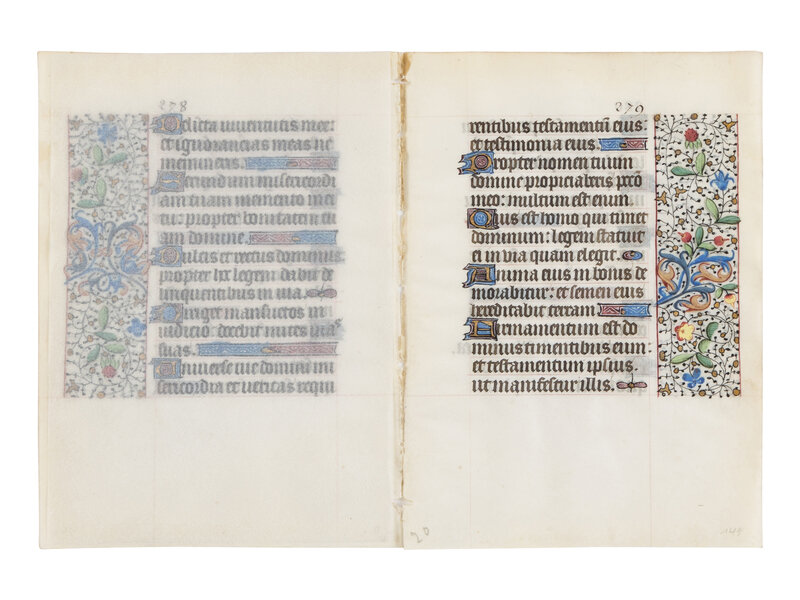 278
Delicta iuventutis mee:
et ignorancias meas ne
memineris.
Secundum misericordi
am tuam memento mei
tu: propter bonitatem tu
am domine.
Dulcis et rectus dominus
propter hoc legem dabit de
linquentibus in via.
Diriget mansuetos in
iudicio: docebit mites vias
suas.
Universe vie domini mi
sericordia et veritas requi
279
rentibus testamentū eius
et testimonia eius.
Propter nomen tuum
domine propiciaberis pctō
meo: multum est enim.
Quis est homo qui timet
dominum: legem statuit
ei in via quam elegit.
Anima eius in bonis de
morabitur: et semen eius
hereditabit terram.
Firmamentum est do
minus timentibus eum:
et testamentum ipsius.
ut manifestetur illis.
20